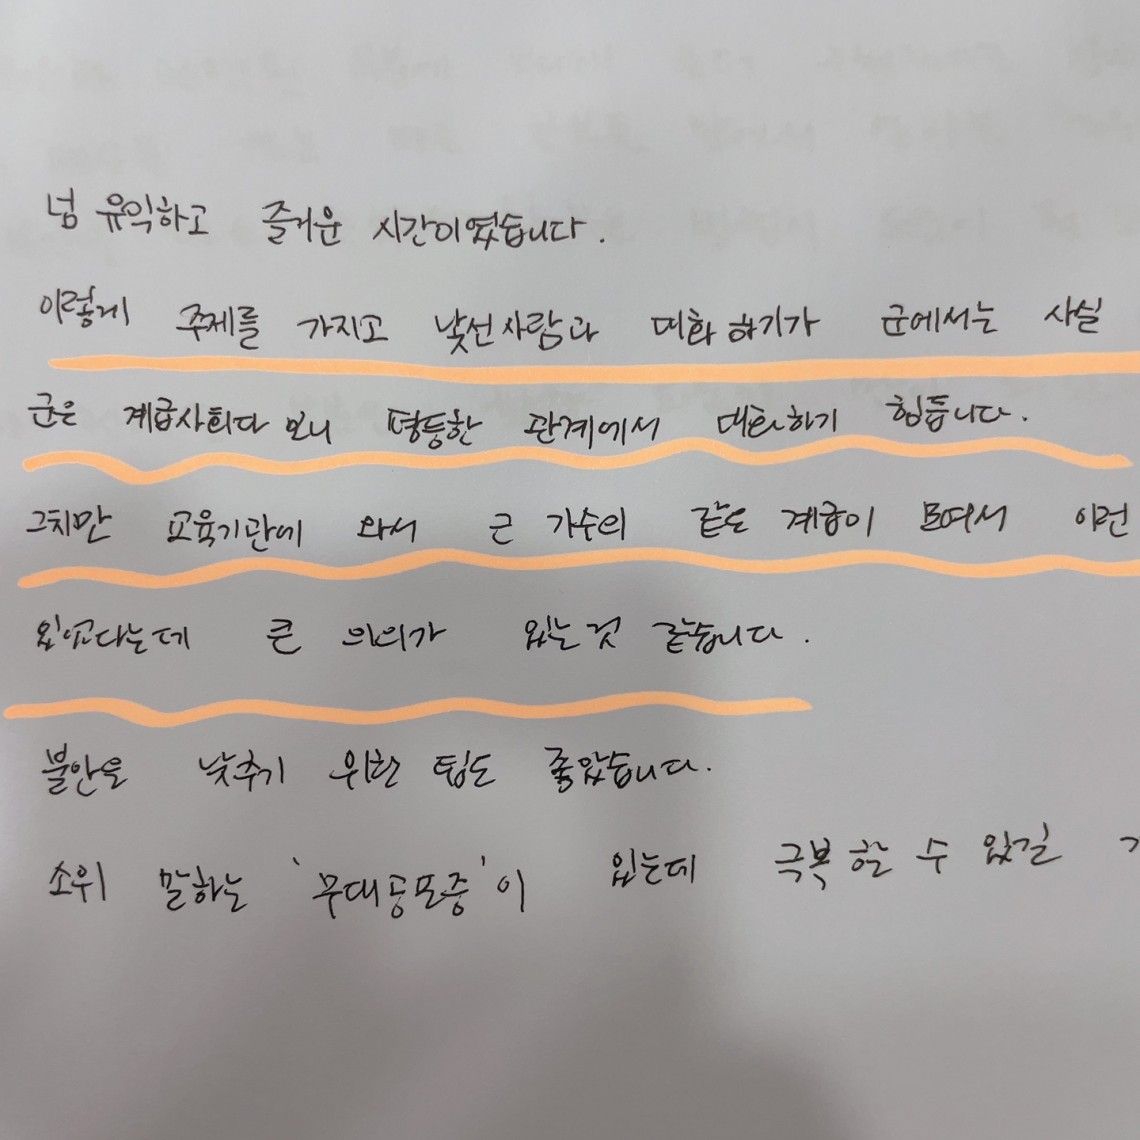 넘 유익하고 즐거운 시간이였습니다.
이렇게 주제를 가지고 낯선사람과 대화하기가 군에서는 사실
군은 계급사회다 보니 평등한 관계에서 대화하기 힘듭니다.
그치만 교육기관에 와서 큰 가수의 같은 계급이 모여서 이런
있었다는데 큰 의의가 있는것 같습니다.
불안을 낮추기 위한 팁도 좋았습니다.
소위 말하는 '무대공포증'이 있는데 극복할 수 있길